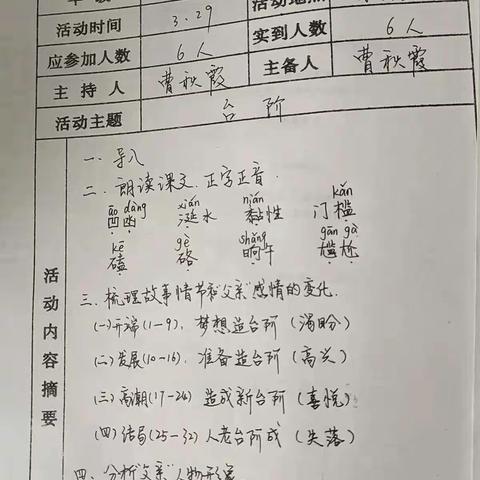 活动时间 3.29
应参加人数 6人 实到人数 6人
主持人 曹秋霞 主备人 曹秋霞
活动主题 台阶
活动内容摘要
一、导入
二、朗读课文,正字正音.
āo dàng xián nián kǎn
凹凼 涎水 黏性 门槛
kē gè shǎng gān gà
磕 硌 晌午 尴尬
三、梳理故事情节和“父亲”感情的变化.
(一)开端(1-9),梦想造台阶(渴盼)
(二)发展(10-16),准备造台阶(高兴)
(三)高潮(17-24) 造成新台阶(喜悦)
(四)结局(25-32)人老台阶成(失落)
四、分析“父亲”人物形象